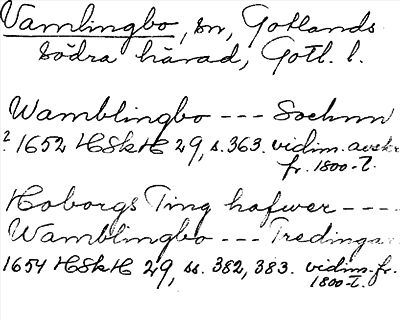 Vamlingbo, sn, Gotlands
södra härad, Gotl. l.
Wamblingbo --- Sochnn
? 1652 HSkH 29, s. 363. vidim. avskr
fr. 1800-t.
Hoborgs Ting hafwer ----
Wamblingbo --- Tredinga
1654 HSkH 29, ss. 382, 383. vidim. fr.
1800-t.